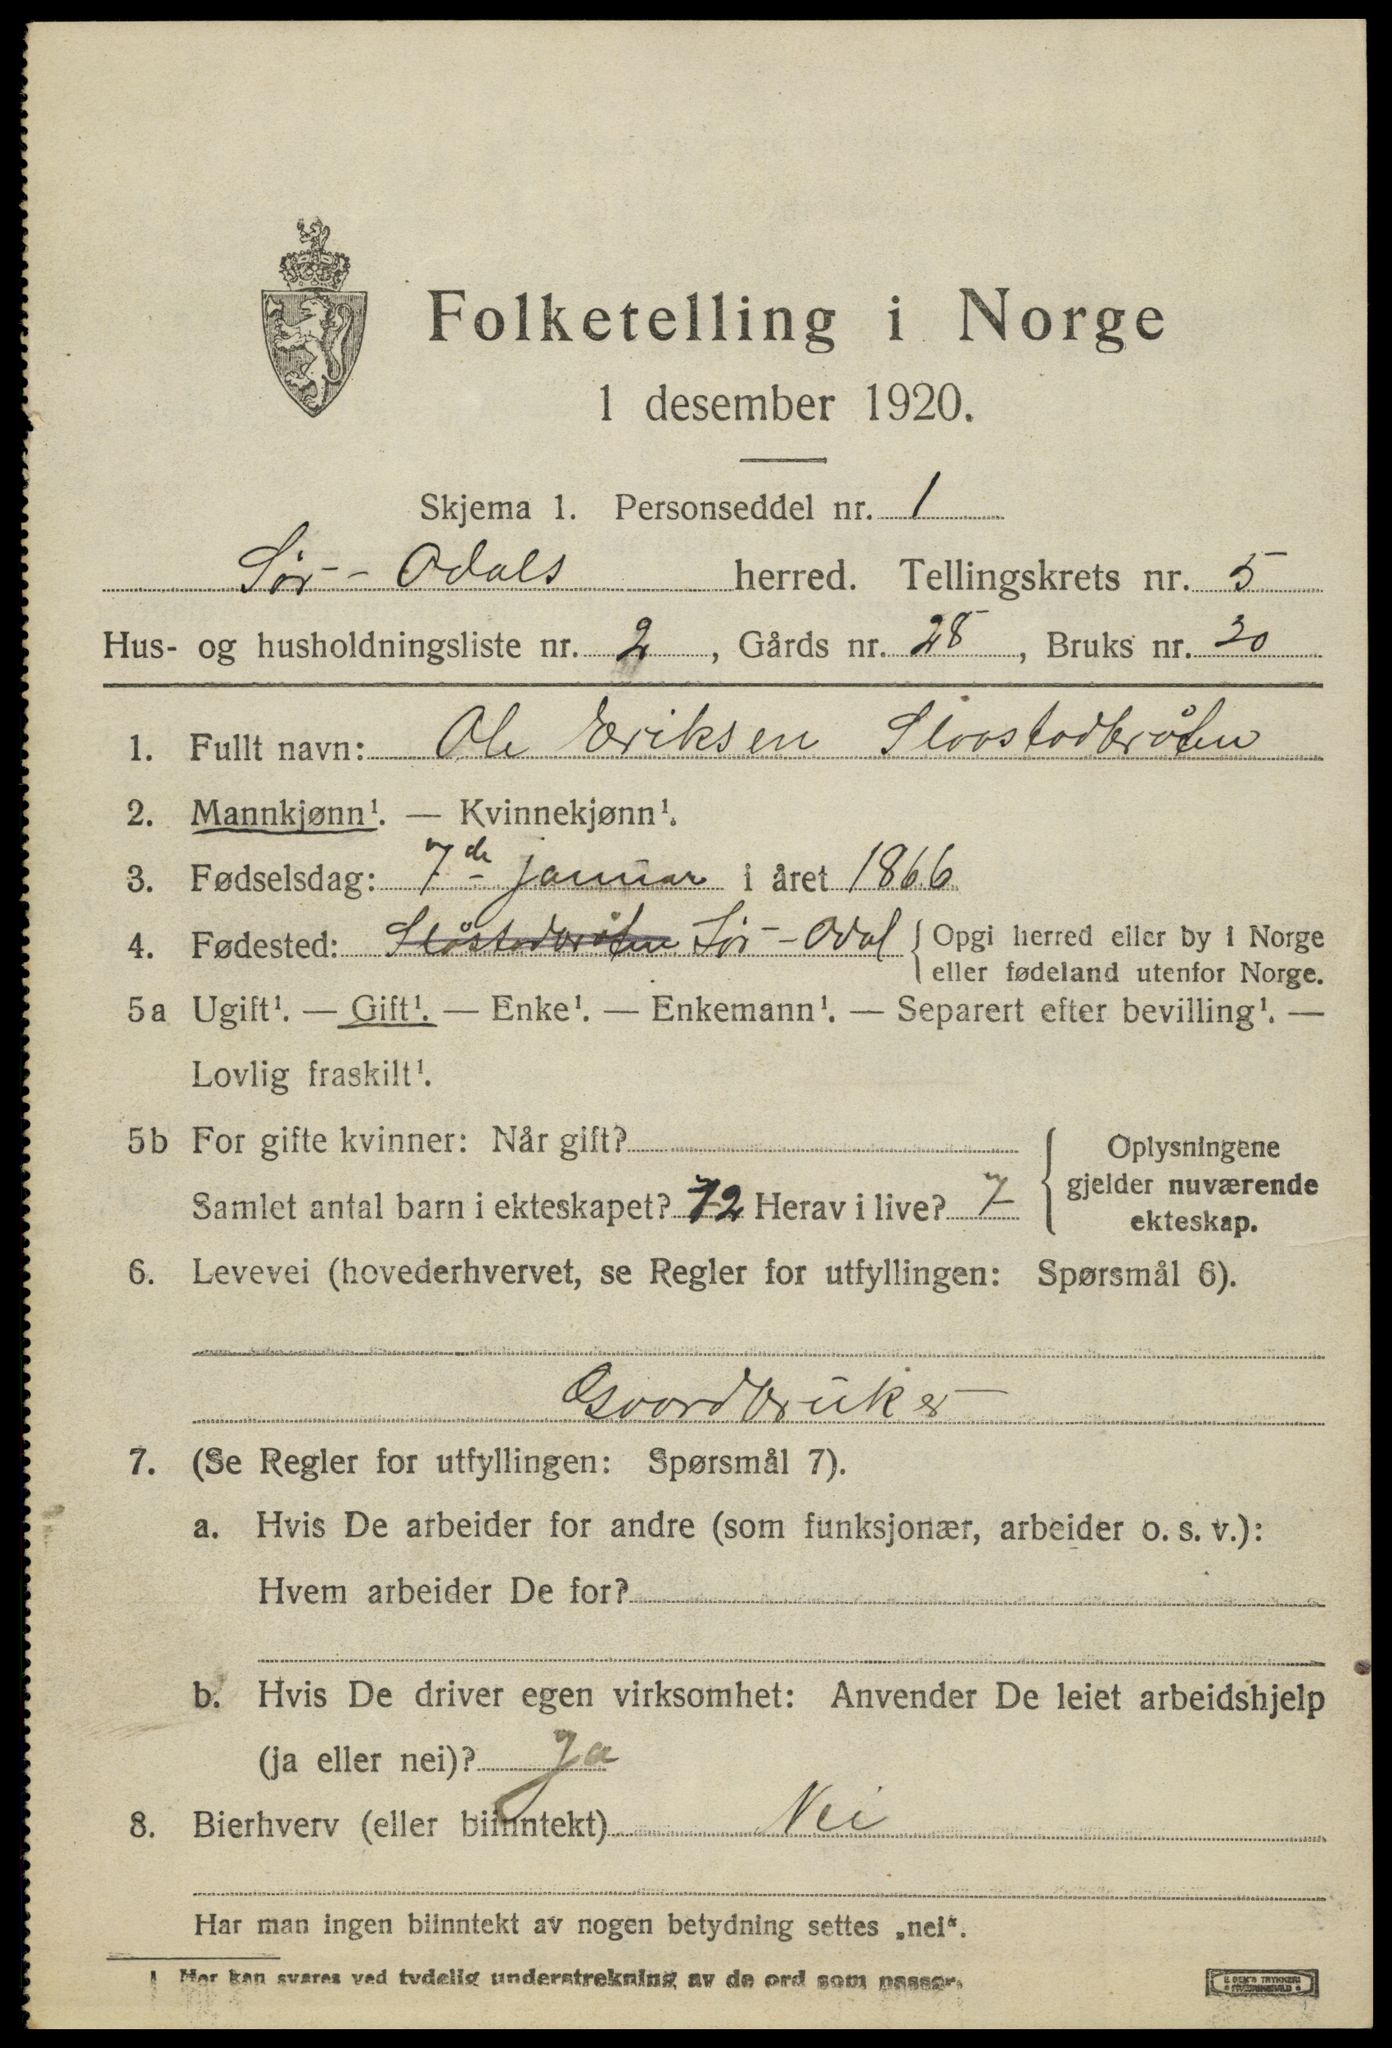 Folketelling i Norge
1 desember 1920.
Skjema 1. Personseddel nr. 1
Sør-Odals herred. Tellingskrets nr. 5
Hus- og husholdningsliste nr. 2, Gårds nr. 28, Bruks nr. 30
1. Fullt navn: Ole Eriksen Slaastadbråten
2. Mannkjønn¹. — Kvinnekjønn¹.
3. Fødselsdag: 7de januar i året 1866
4. Fødested: Slåstadbråten Sør-Odal { Opgi herred eller by i Norge
eller fødeland utenfor Norge.
5a Ugift¹. — Gift¹. — Enke¹. — Enkemann¹. — Separert efter bevilling¹. —
Lovlig fraskilt¹.
5b For gifte kvinner: Når gift?
Samlet antal barn i ekteskapet? 12 Herav i live? 7
{ Oplysningene
gjelder nuværende
ekteskap.
6. Levevei (hovederhvervet, se Regler for utfyllingen: Spørsmål 6).
Gaardbruker
7. (Se Regler for utfyllingen: Spørsmål 7).
a. Hvis De arbeider for andre (som funksjonær, arbeider o. s. v.):
Hvem arbeider De for?
b. Hvis De driver egen virksomhet: Anvender De leiet arbeidshjelp
(ja eller nei)? Ja
8. Bierhverv (eller biinntekt) Nei
Har man ingen biinntekt av nogen betydning settes „nei“.
1 Her kan svares ved tydelig understrekning av de ord som passer.